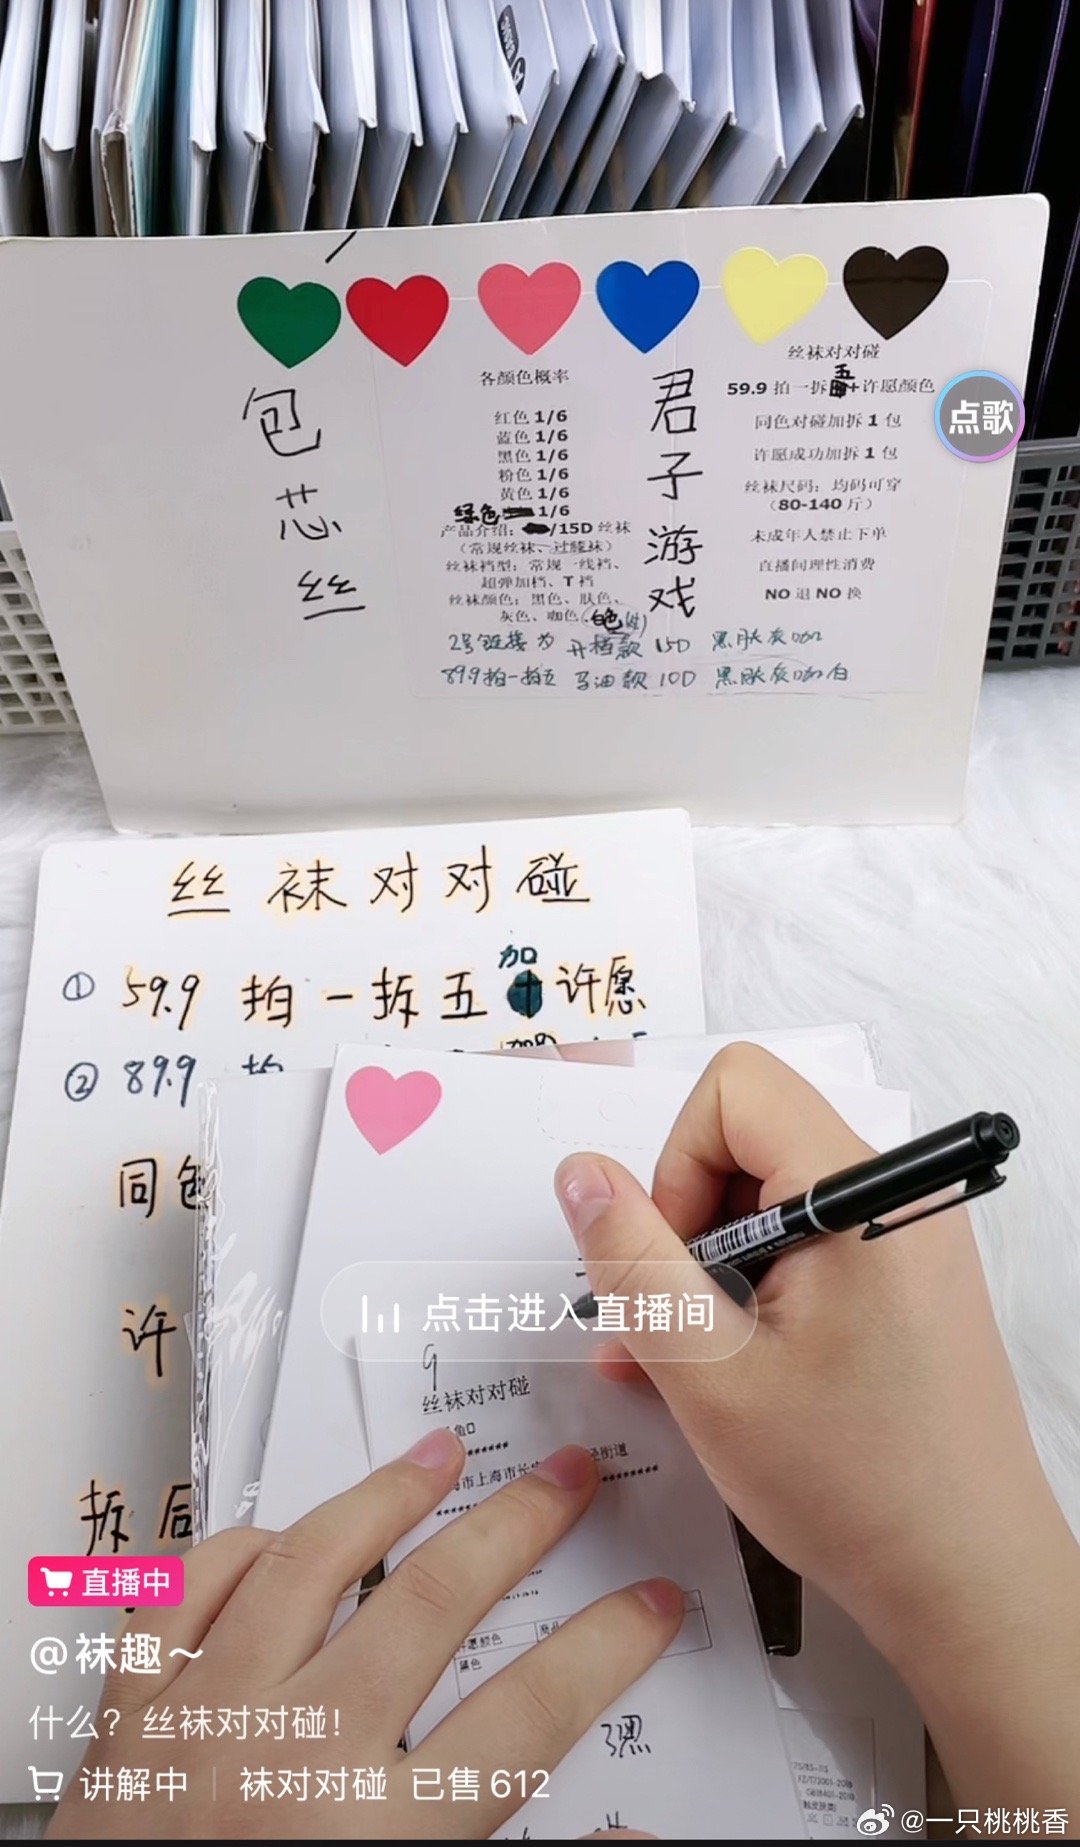 包芯丝
各颜色概率
红色 1/6
蓝色 1/6
黑色 1/6
粉色 1/6
黄色 1/6
绿色 1/6
产品介绍: /15D 丝袜
(常规丝袜、过膝袜)
丝袜裆型: 常规一线裆、
超弹加裆、T 裆
丝袜颜色: 黑色、肤色、
灰色、咖色、白色
君子游戏
丝袜对对碰
59.9 拍一拆五+许愿颜色
同色对碰加拆 1 包
许愿成功加拆 1 包
丝袜尺码: 均码可穿
(80-140 斤)
未成年人禁止下单
直播间理性消费
NO 退 NO 换
2号链接为 开裆款 15D 黑肤灰咖
89.9拍一拍五 马油款 10D 黑肤灰咖白
点歌
丝袜对对碰
① 59.9 拍一拆五加许愿
② 89.9 拍
同色
许
拆后
点击进入直播间
9
丝袜对对碰
市上海市长
街道
许愿颜色
黑色
直播中
@袜趣~
什么? 丝袜对对碰!
讲解中 | 袜对对碰 已售 612
@一只桃桃香